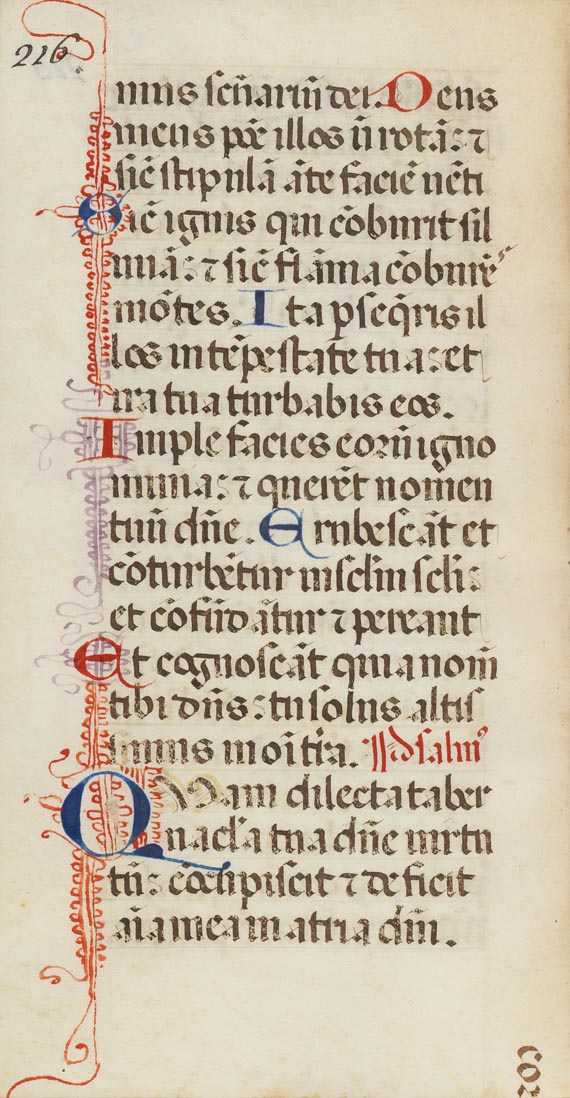 216
mus scūariū dei. Deus
meus pōe illos ū rotā: ⁊
sic̄ stipulā āte faciē uēti
Sic̄ ignis qui cōburit sil
uā: ⁊ sic̄ flāma cōburēs
mōtes. Ita pseq̄ris il
los in tēpestate tua: et
ira tua turbabis eos.
Imple facies eorū igno
minia: ⁊ querēt nomen
tuū dn̄e. Erubescāt et
cōturbētur in sc̄lm sc̄li:
et cōfūdātur ⁊ pereant
Et cognoscāt quia nom̄
tibi dn̄s: tu solus altis
simus in oī tr̄a. psalmꝰ
QVam dilecta taber
nacl̄a tua dn̄e uirtu
tū: cōcupiscit ⁊ deficit
aīa mea in atria dn̄i.
co